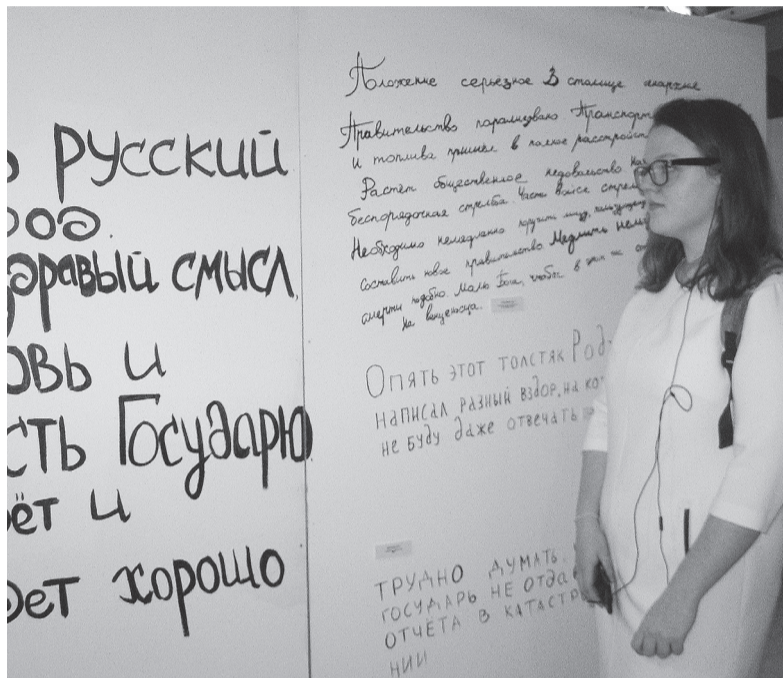 РУССКИЙ
здравый смысл,
и
Государю
и
хорошо
Положение серьёзное В столице анархия
Правительство парализовано Транспорт
и топлива пришёл в полное расстройство
Растёт общественное недовольство На
беспорядочная стрельба. Части войск стрел
Необходимо немедленно поручить лицу, пользующему
составить новое правительство Медлить нел
смерти подобно. Молю Бога, чтобы в этот час от
на венценосца.
Опять этот толстяк Род
написал разный вздор, на ко
не буду даже отвечать
ТРУДНО ДУМАТЬ.
ГОСУДАРЬ НЕ ОТДА
ОТЧЁТА В КАТАСТР
НИИ